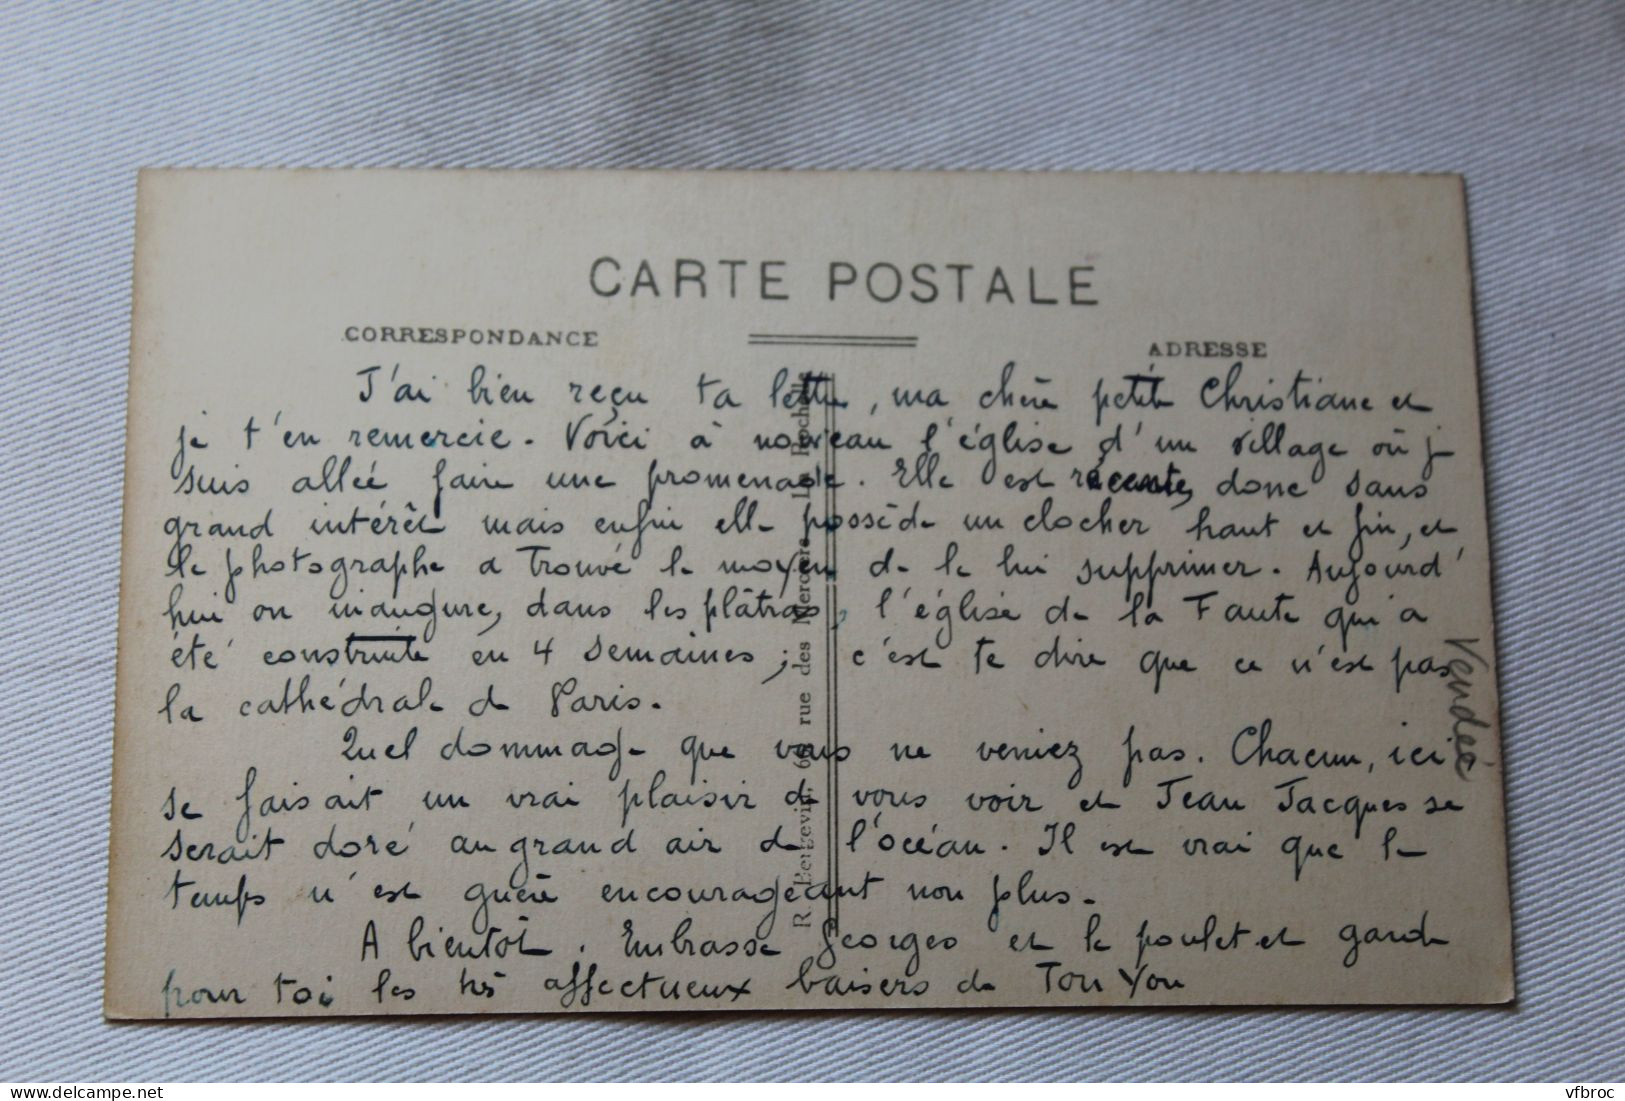 CARTE POSTALE
CORRESPONDANCE
ADRESSE
J'ai bien reçu ta lettre, ma chère petite Christiane et
je t'en remercie. Voici à nouveau l'église d'un village où je
suis allée faire une promenade. Elle est récente, donc sans
grand intérêt mais enfin elle possède un clocher haut et fin, et
le photographe a trouvé le moyen de le lui supprimer. Aujourd'
hui on inaugure, dans les plâtras, l'église de la Faute qui a
été construite en 4 semaines; c'est te dire que ce n'est pas
la cathédrale de Paris.
Quel dommage que vous ne veniez pas. Chacun, ici
se faisait un vrai plaisir de vous voir et Jean Jacques se
serait doré au grand air de l'océan. Il est vrai que le
temps n'est guère encourageant non plus.
A bientôt. Embrasse Georges et le poulet et garde
pour toi les très affectueux baisers de Ton You
Vendée
R. Bergevin, 6 rue des Merciers La Rochelle
https://www.delcampe.net
vfbroc